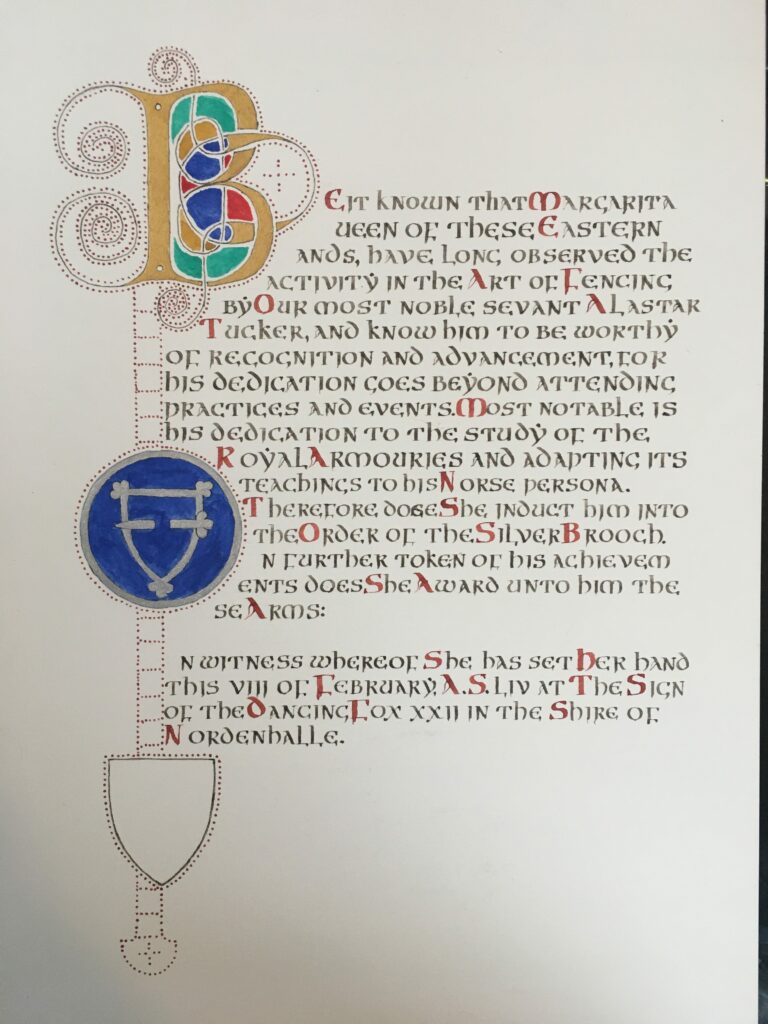 B
EIT KNOWN THAT MARGARITA
UEEN OF THESE EASTERN
ANDS, HAVE LONG OBSERVED THE
ACTIVITY IN THE ART OF FENCING
BY OUR MOST NOBLE SEVANT ALASTAR
TUCKER, AND KNOW HIM TO BE WORTHY
OF RECOGNITION AND ADVANCEMENT, FOR
HIS DEDICATION GOES BEYOND ATTENDING
PRACTICES AND EVENTS. MOST NOTABLE IS
HIS DEDICATION TO THE STUDY OF THE
ROYAL ARMOURIES AND ADAPTING ITS
TEACHINGS TO HIS NORSE PERSONA.
THEREFORE DOES SHE INDUCT HIM INTO
THE ORDER OF THE SILVER BROOCH.
N FURTHER TOKEN OF HIS ACHIEVEM
ENTS DOES SHE AWARD UNTO HIM THE
SE ARMS:
N WITNESS WHEREOF SHE HAS SET HER HAND
THIS VIII OF FEBRUARY, A.S. LIV AT THE SIGN
OF THE DANCING FOX XXII IN THE SHIRE OF
NORDENHALLE.